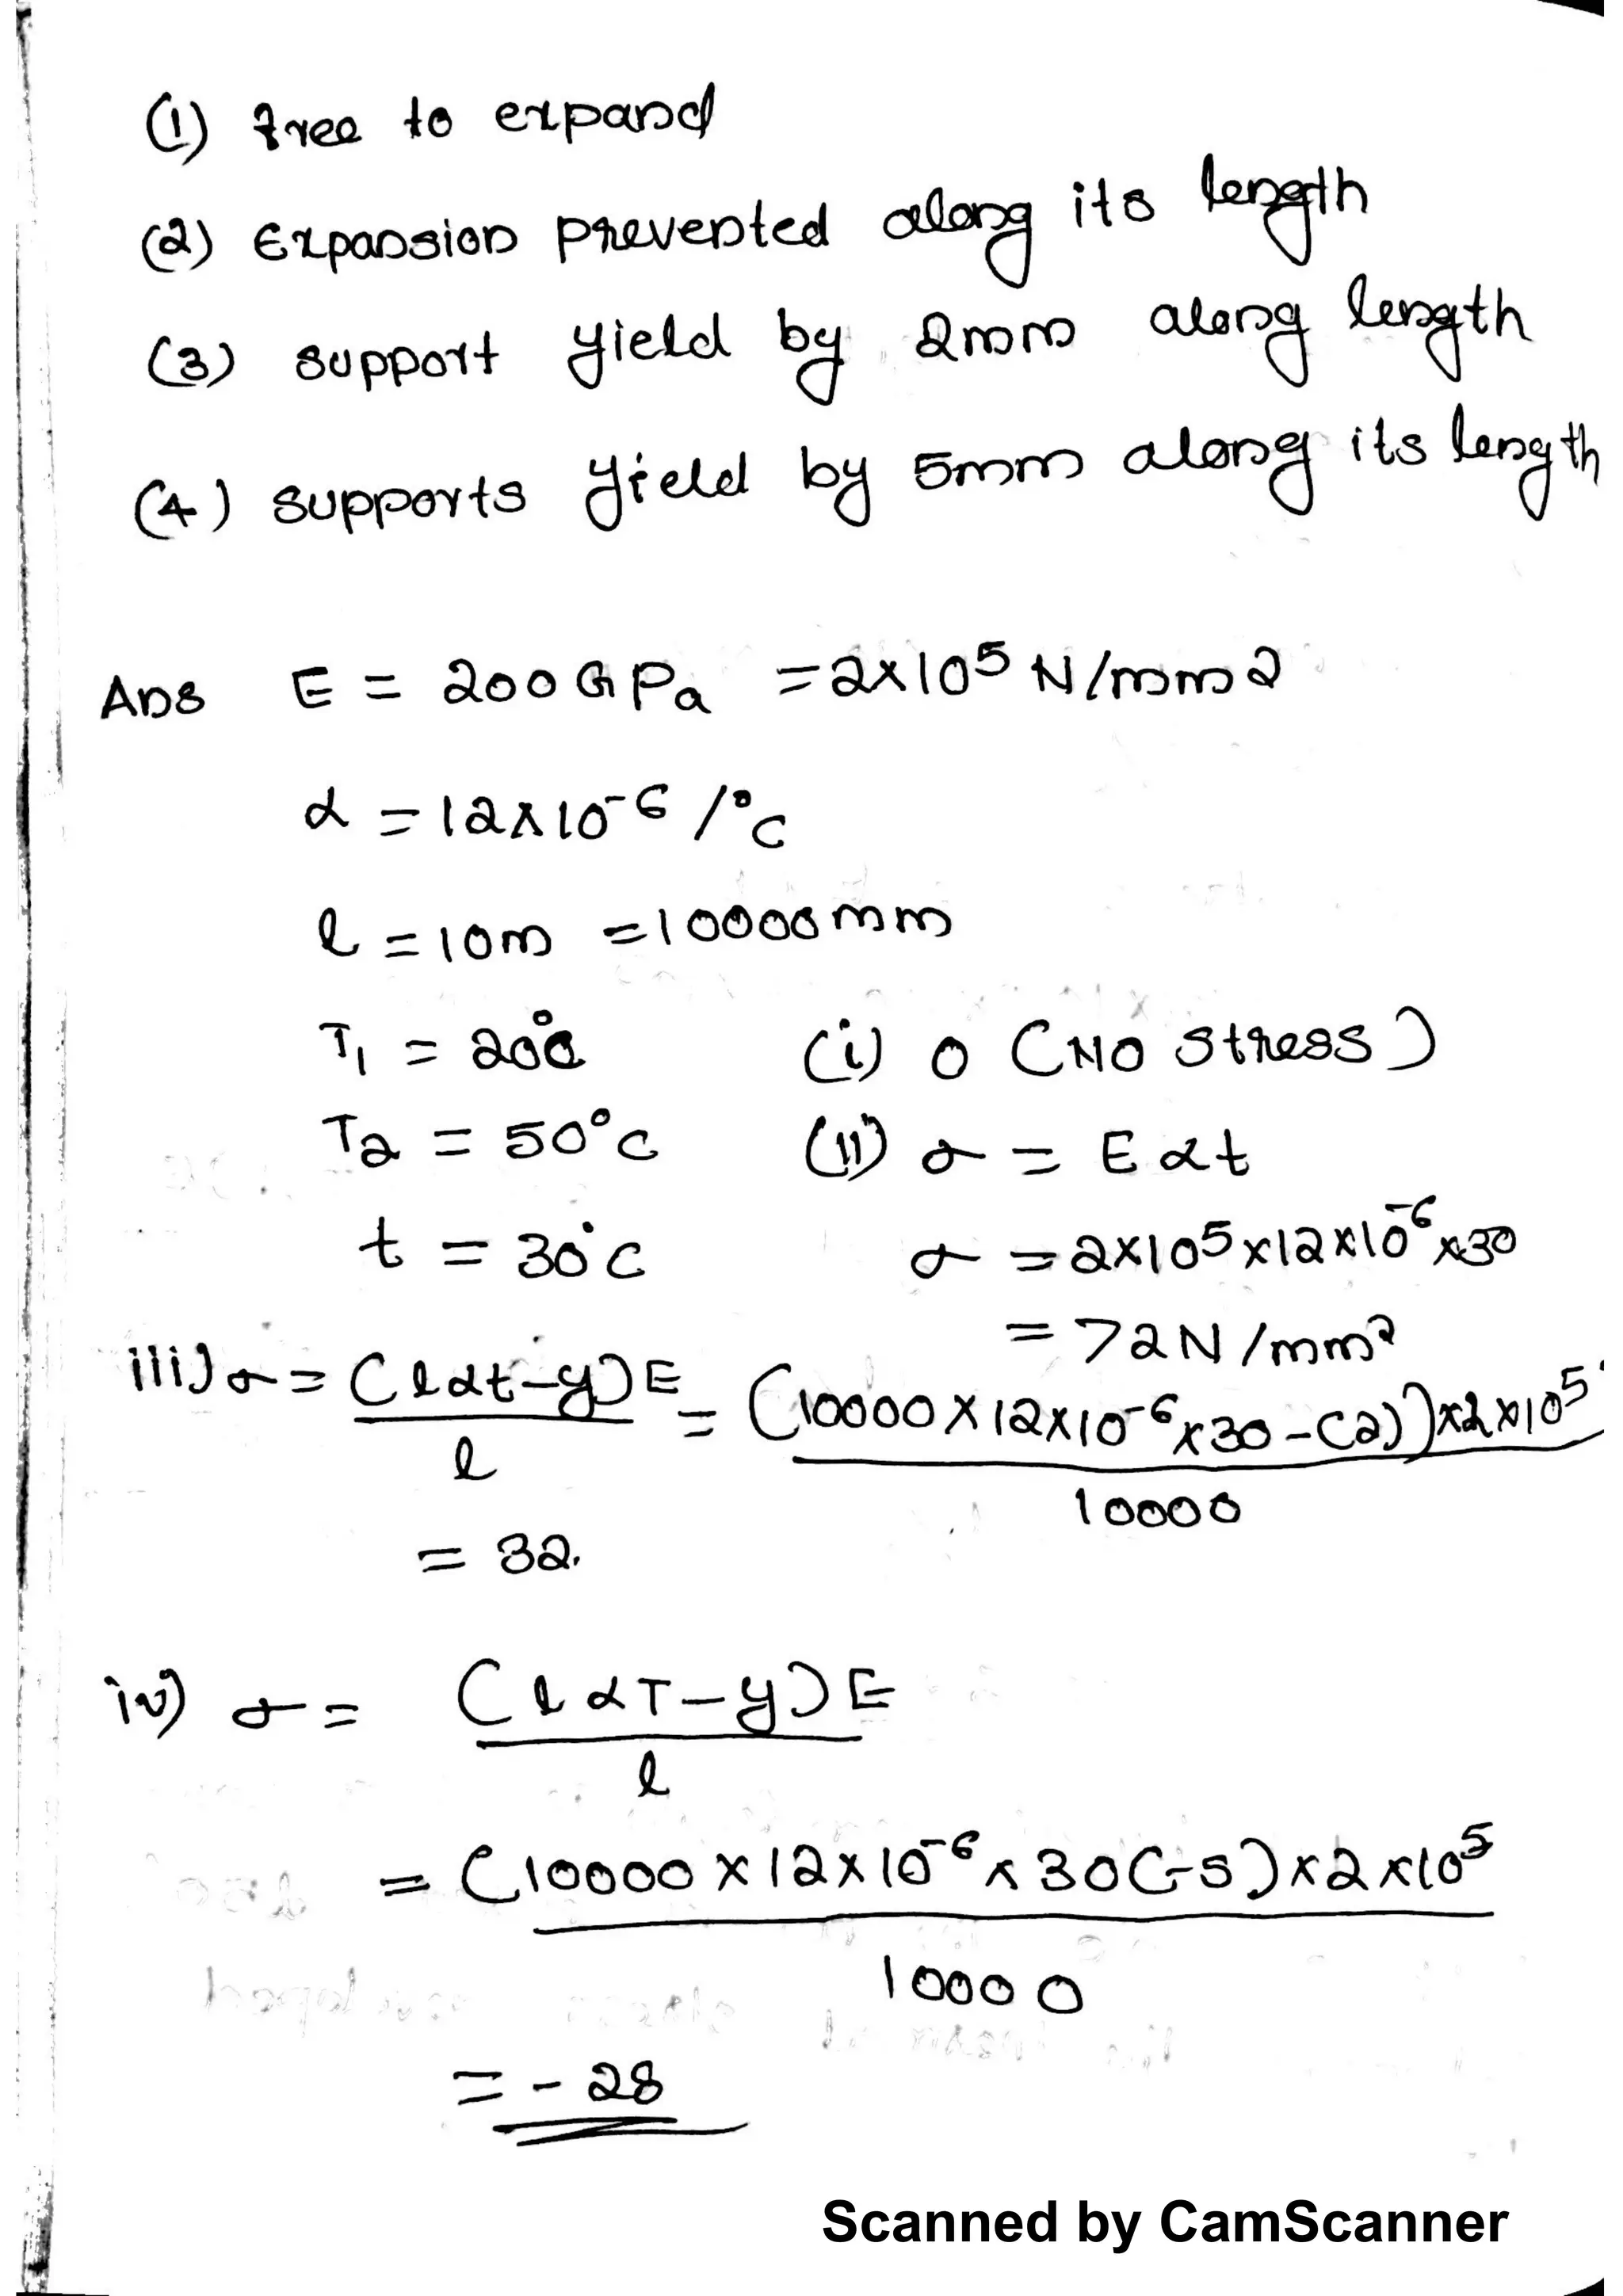 (1) free to expand
(2) Expansion prevented along its length
(3) support yield by 2mm along length
(4) supports yield by 5mm along its length
Ans E = 200GPa = 2×10⁵ N/mm2
α = 12×10⁻⁶ /°C
l = 10m = 10000mm
T₁ = 20°C (i) 0 (NO stress)
T₂ = 50°C (ii) σ = Eαt
t = 30°C σ = 2×10⁵×12×10⁻⁶×30
= 72N/mm²
iii) σ = (lαt-y)E / l = (10000×12×10⁻⁶×30-(2))×2×10⁵ / 10000
= 32.
iv) σ = (lαT-y)E / l
= (10000×12×10⁻⁶×30(-5)×2×10⁵ / 10000
= -28
Scanned by CamScanner